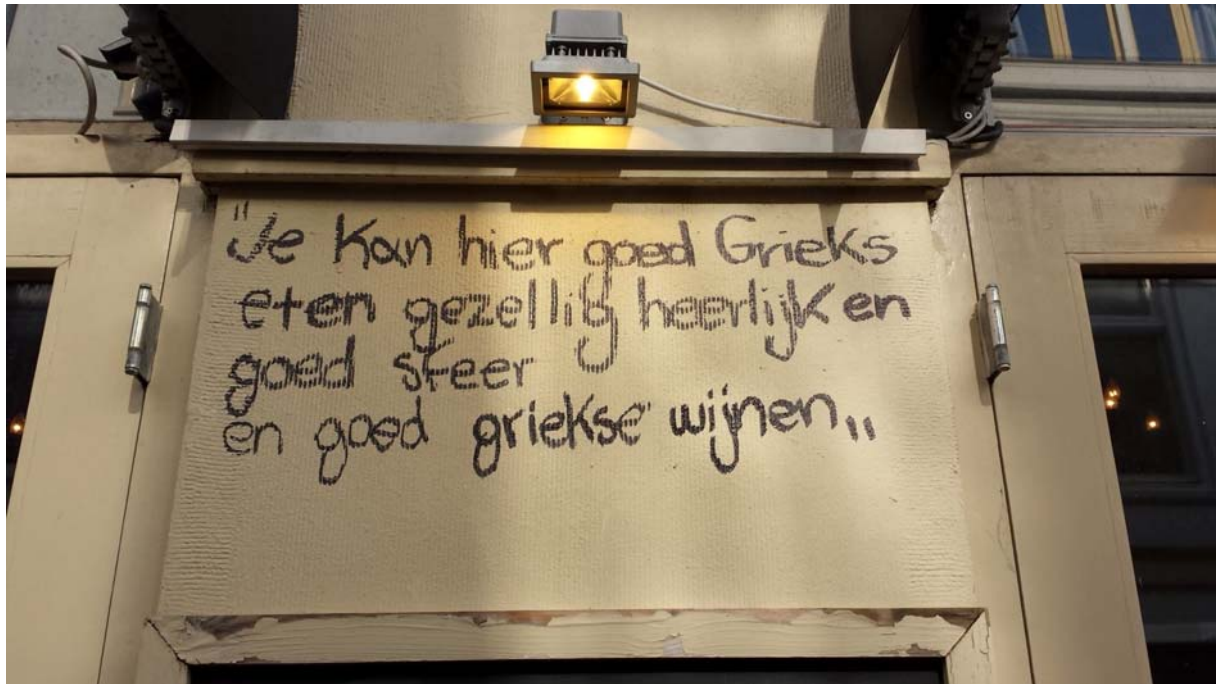 "Je kan hier goed Grieks
eten gezellig heerlijk en
goed sfeer
en goed griekse wijnen,,